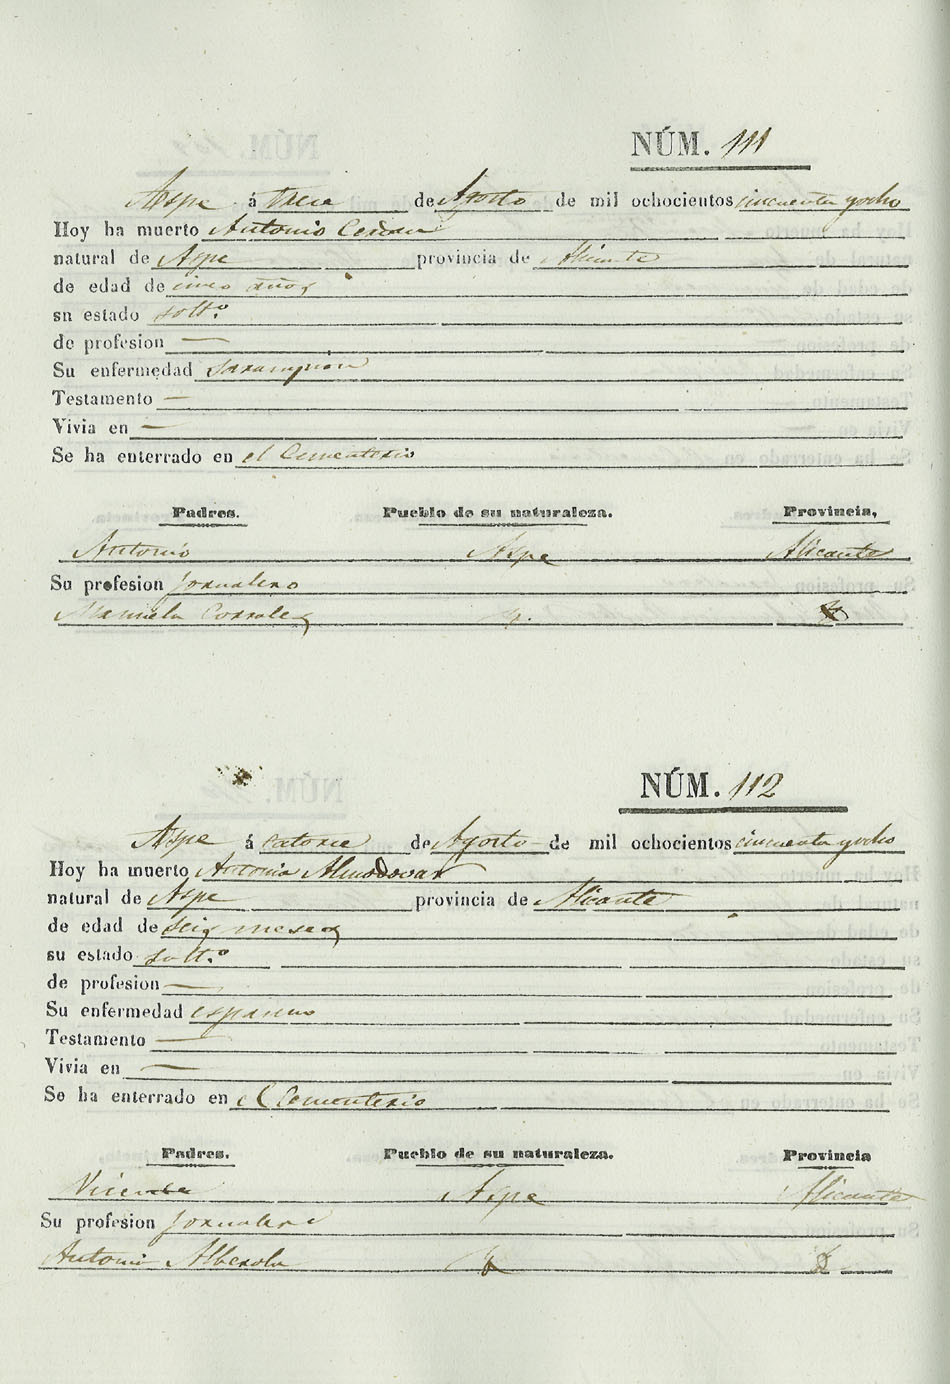 NÚM. 111
Aspe á trece de Agosto de mil ochocientos cincuenta yocho
Hoy ha muerto Antonio Cerdan
natural de Aspe provincia de Alicante
de edad de cinco años
sn estado soltº
de profesion —
Su enfermedad sarampion
Testamento —
Vivia en —
Se ha enterrado en el Cementerio
Padres. Pueblo de su naturaleza. Provincia,
Antonio Aspe Alicante
Su profesion jornalero
Manuela
NÚM. 112
Aspe á catorce de Agosto de mil ochocientos cincuenta yocho
Hoy ha muerto Antonia Almodovar
natural de Aspe provincia de Alicante
de edad de seis meses
su estado soltº
de profesion —
Su enfermedad espasmo
Testamento —
Vivia en —
Se ha enterrado en el Cementerio
Padres. Pueblo de su naturaleza. Provincia
Vicente Aspe Alicante
Su profesion jornalero
Antonia Alberola